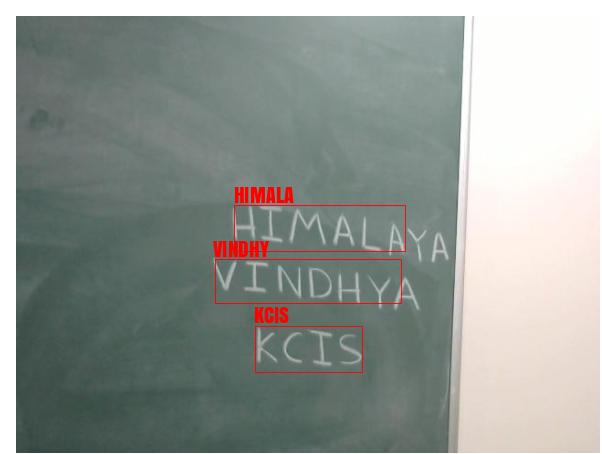 HIMALA
HIMALAYA
VINDHY
VINDHYA
KCIS
KCIS